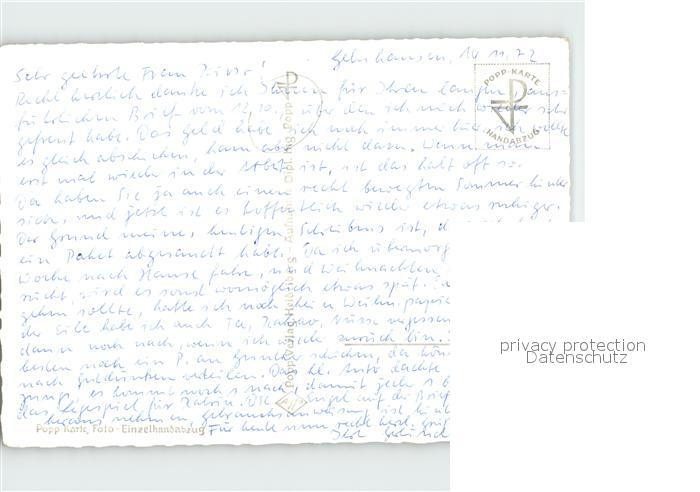 Gelnhausen, 14.11.72
Sehr geehrte Frau
Recht herzlich danke ich Ihnen für Ihren langen, aus-
führlichen Brief vom 12.10., über den ich mich wieder sehr
gefreut habe. Das Geld habe ich noch immer hier, ich wollte
es gleich abschicken, kam aber nicht dazu. Wenn man
erst mal wieder in der Arbeit ist, ist das halt oft so.
Da haben Sie ja auch einen recht bewegten Sommer hinter
sich, und jetzt ist es hoffentlich wieder etwas ruhiger.
Der Grund meines heutigen Schreibens ist, d
ein Paket abgesandt habe. Da ich übermorg
Woche nach Hause fahre, und Weihnachten
rückt, wird es sonst womöglich etwas spät.
gehn sollte, hatte ich noch kein Weihn.papier
der Eile habe ich auch Tee, Kakao, Nüsse vergessen
dann noch nach, wenn ich wieder zurück bin.
besten noch ein P. an schicken, da kön
nach Gutdünken verteilen. Das kl. Auto dachte
es kommt noch s nach, damit jede s
das Legespiel für Katrin. Die Engel auf die Brief
heraus nehmen, Gebrauchsanweisung ist hin
Für heute nun recht herzl. Grüß
Ihre
POPP-KARTE
HANDABZUG
Popp-Verlag Heidelberg - Aufnahme Dipl. Ing. Popp
Popp Karte Foto - Einzelhandabzug
privacy protection
Datenschutz